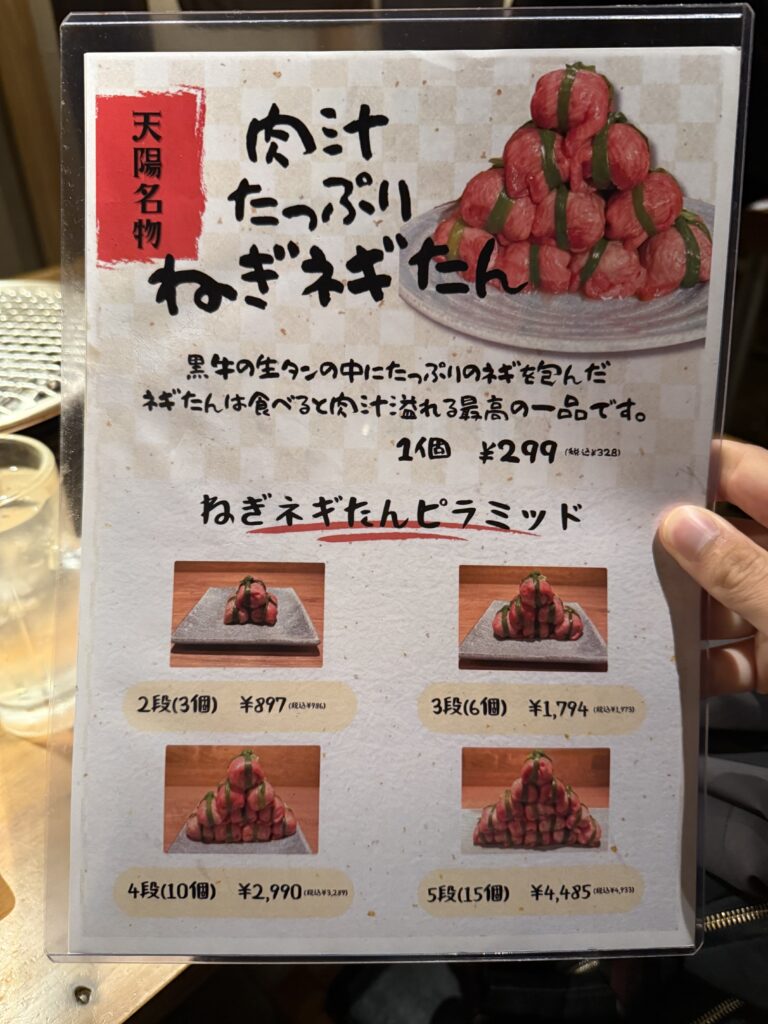 天陽名物
肉汁
たっぷり
ねぎネギたん
黒牛の生タンの中にたっぷりのネギを包んだ
ネギたんは食べると肉汁溢れる最高の一品です。
1個 ¥299 (税込¥328)
ねぎネギたんピラミッド
2段(3個) ¥897 (税込¥986)
3段(6個) ¥1,794 (税込¥1,973)
4段(10個) ¥2,990 (税込¥3,289)
5段(15個) ¥4,485 (税込¥4,933)